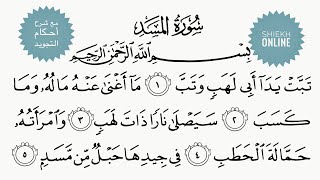 مع شرح
أحكام
التجويد
SHIEKH
ONLINE
سُورَةُ المَسَد
بِسْمِ اللَّهِ الرَّحْمَٰنِ الرَّحِيمِ
تَبَّتْ يَدَآ أَبِى لَهَبٍ وَتَبَّ ۝١ مَآ أَغْنَىٰ عَنْهُ مَالُهُۥ وَمَا
كَسَبَ ۝٢ سَيَصْلَىٰ نَارًا ذَاتَ لَهَبٍ ۝٣ وَٱمْرَأَتُهُۥ
حَمَّالَةَ ٱلْحَطَبِ ۝٤ فِى جِيدِهَا حَبْلٌ مِّن مَّسَدٍۭ ۝٥